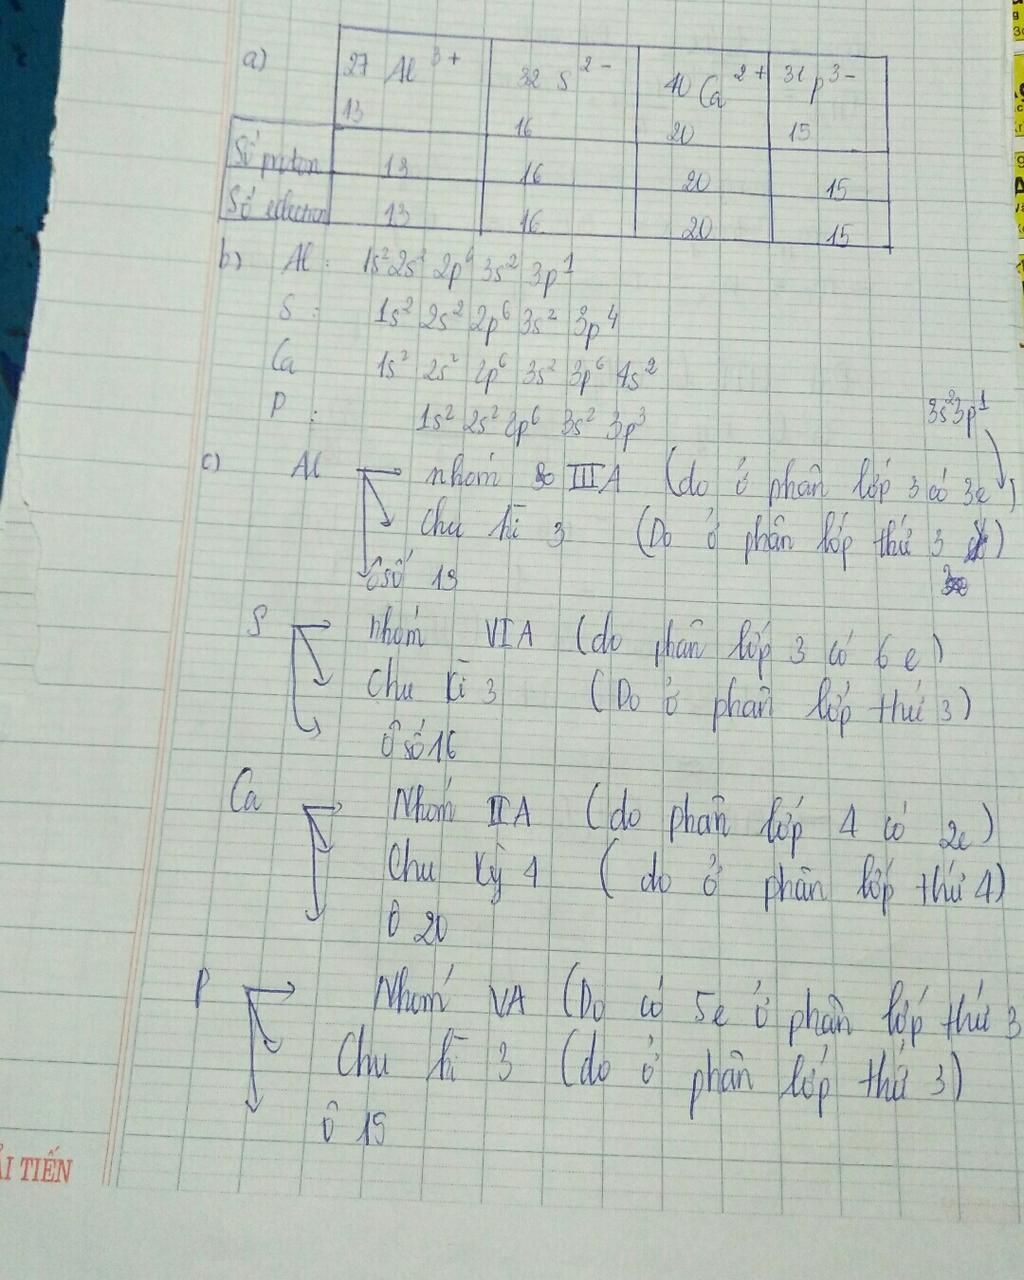 a) 27 Al 3+ 32 S 2- 40 Ca 2+ 31 p 3-
13 16 20 15
Số proton 13 16 20 15
Số electron 13 16 20 15
b) Al : 1s² 2s² 2p⁶ 3s² 3p¹
S : 1s² 2s² 2p⁶ 3s² 3p⁴
Ca 1s² 2s² 2p⁶ 3s² 3p⁶ 4s²
P : 1s² 2s² 2p⁶ 3s² 3p³
3s² 3p¹
c) Al nhóm IIIA (do ở phân lớp 3 có 3e)
Chu kì 3 (Do ở phân lớp thứ 3)
Ô số 13
S nhóm VIA (do phân lớp 3 có 6e)
Chu kì 3 (Do ở phân lớp thứ 3)
Ô số 16
Ca Nhóm IIA (do phân lớp 4 có 2e)
Chu kỳ 4 (do ở phân lớp thứ 4)
Ô 20
P Nhóm VA (Do có 5e ở phân lớp thứ 3
Chu kì 3 (do ở phân lớp thứ 3)
Ô 15
ẢI TIẾN